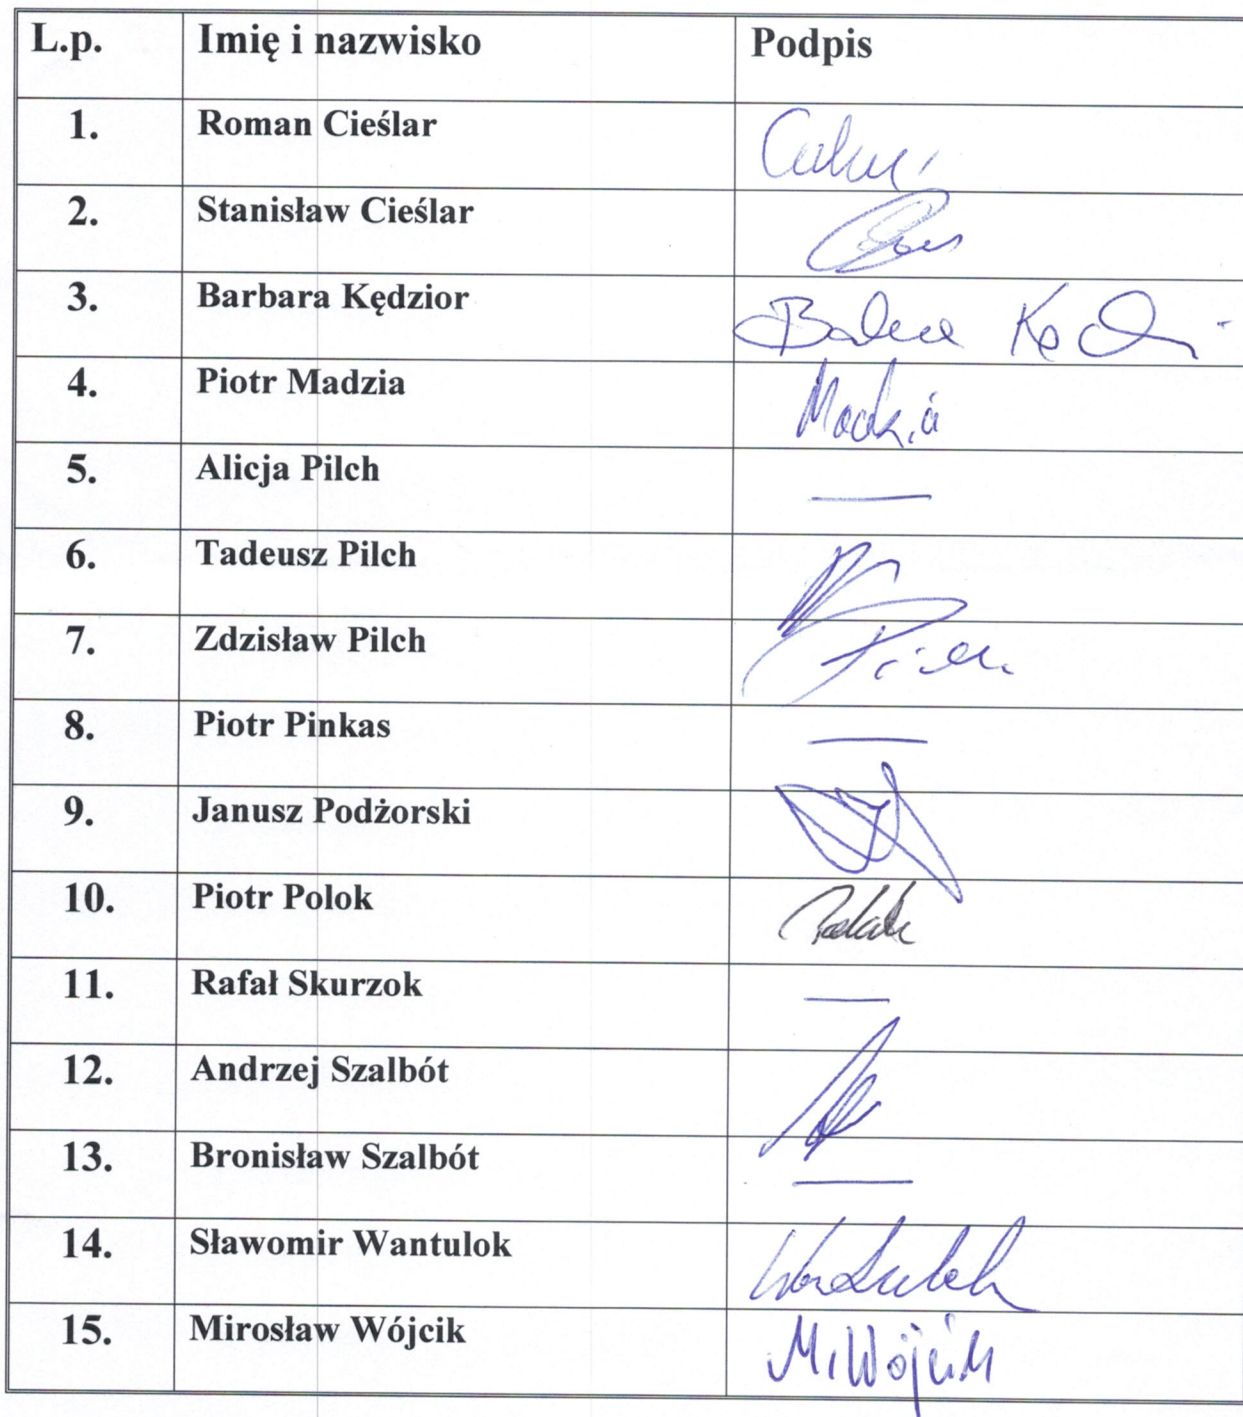 L.p. Imię i nazwisko Podpis
1. Roman Cieślar
2. Stanisław Cieślar
3. Barbara Kędzior
4. Piotr Madzia Madzia
5. Alicja Pilch —
6. Tadeusz Pilch
7. Zdzisław Pilch
8. Piotr Pinkas —
9. Janusz Podżorski
10. Piotr Polok
11. Rafał Skurzok —
12. Andrzej Szalbót
13. Bronisław Szalbót —
14. Sławomir Wantulok Wantulok
15. Mirosław Wójcik M. Wójcik